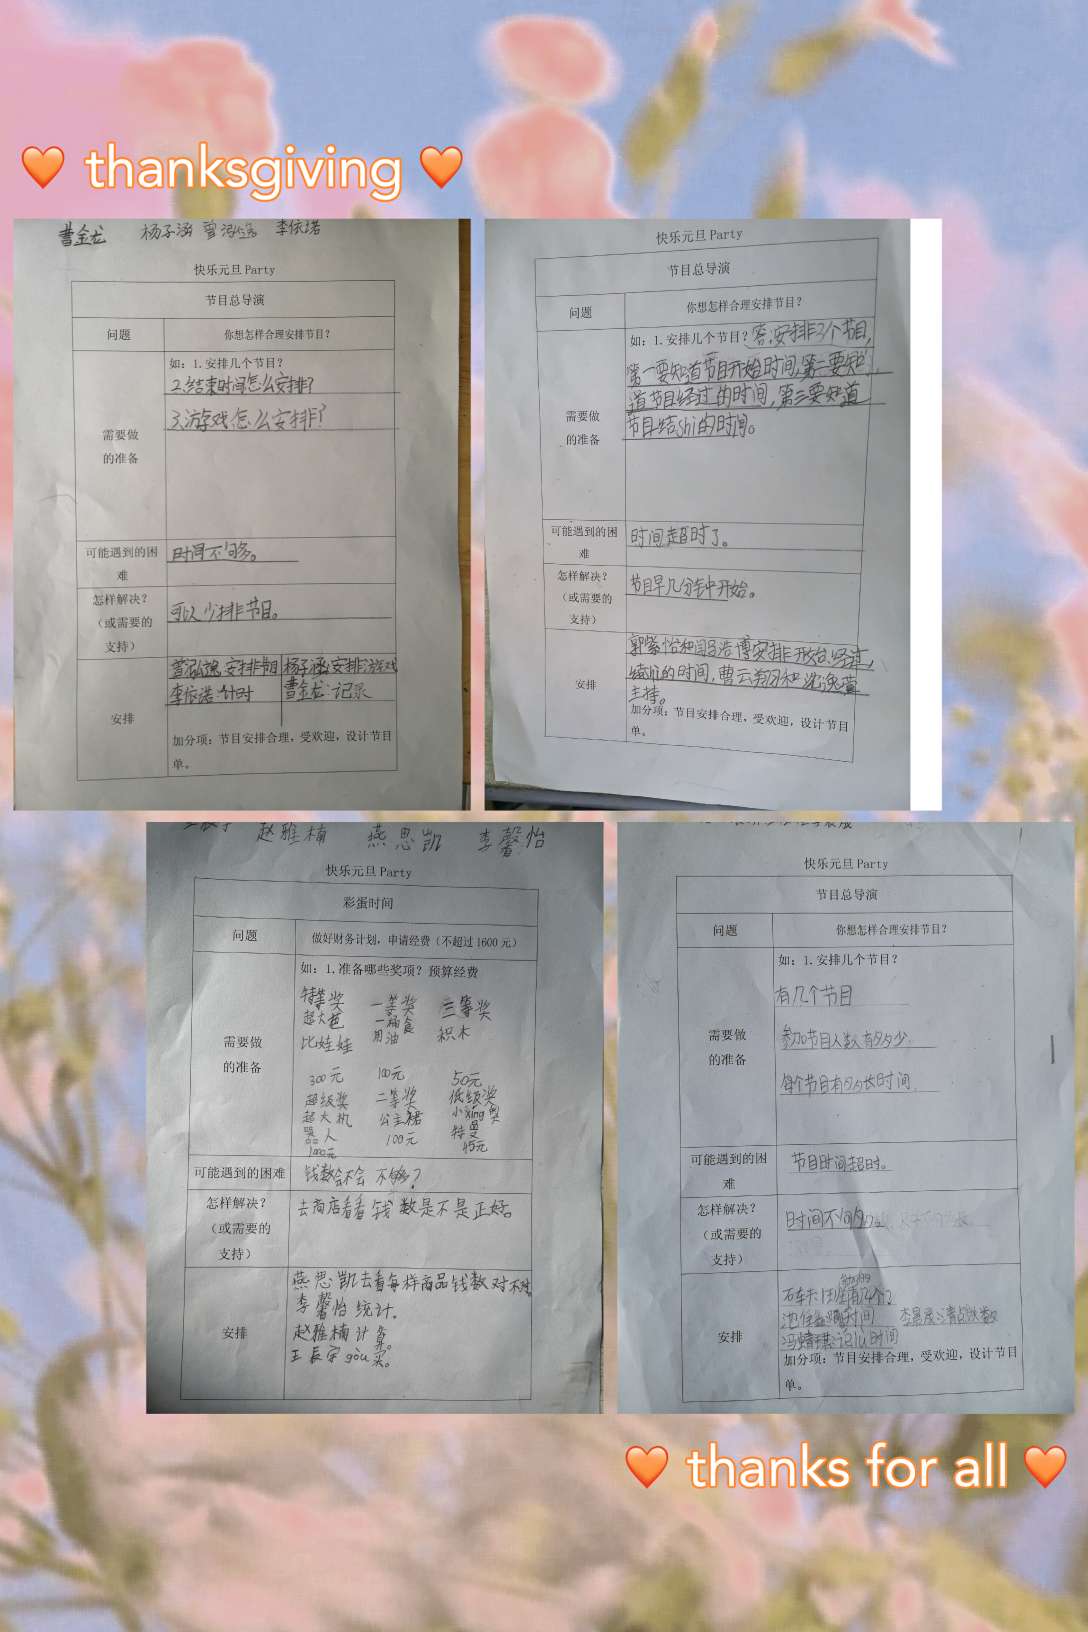 🧡 thanksgiving 🧡
曹金龙 杨子涵 曾泓逸 李依诺
快乐元旦 Party
节目总导演
问题 你想怎样合理安排节目？
需要做
的准备
如：1.安排几个节目？
2.结束时间怎么安排？
3.游戏怎么安排？
可能遇到的困
难
时间不够。
怎样解决？
（或需要的
支持）
可以少排节目。
安排
曾泓逸:安排节目 杨子涵:安排游戏
李依诺:计时 曹金龙:记录
加分项：节目安排合理，受欢迎，设计节目
单。
快乐元旦 Party
节目总导演
问题 你想怎样合理安排节目？
需要做
的准备
如：1.安排几个节目？答:安排3个节目,
第一要知道节目开始时间,第二要知
道节目经过的时间,第三要知道
节目结shi的时间。
可能遇到的困
难
时间超时了。
怎样解决？
（或需要的
支持）
节目早几分钟开始。
安排
郭紫怡和闫吕浩博安排开始、经过,
的时间,曹云翔和
主持。
加分项：节目安排合理，受欢迎，设计节目
单。
赵雅楠 燕思凯 李馨怡
快乐元旦 Party
彩蛋时间
问题 做好财务计划，申请经费（不超过1600元）
需要做
的准备
如：1.准备哪些奖项？预算经费
特等奖 一等奖 三等奖
超大芭 一桶食 积木
比娃娃 用油
300元 100元 50元
超级奖 二等奖 低级奖
超大机 公主裙 小xing奥
器人 100元 特曼
1000元 45元
可能遇到的困难 钱数会不会不够？
怎样解决？
（或需要的
支持）
去商店看看钱数是不是正好。
安排
燕思凯去看每样商品钱数对不对。
李馨怡统计。
赵雅楠计算。
王辰宇gòu买。
快乐元旦 Party
节目总导演
问题 你想怎样合理安排节目？
需要做
的准备
如：1.安排几个节目？
有几个节目
参加节目人数有多少.
每个节目有多长时间.
可能遇到的困
难
节目时间超时。
怎样解决？
（或需要的
支持）
时间不够
安排
时间
时间
加分项：节目安排合理，受欢迎，设计节目
单。
🧡 thanks for all 🧡